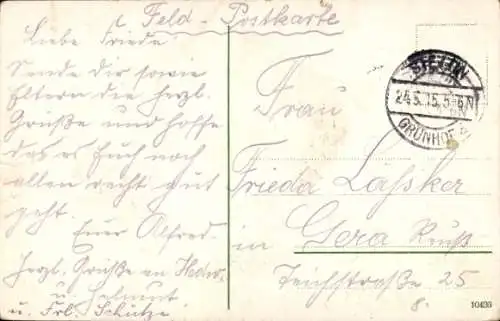 Feld-Postkarte
Liebe Frieda!
Sende dir sowie
Eltern die herzl.
Grüße und hoffe
das es Euch noch
allen recht gut
geht.
Euer Alfred.
Herzl. Grüße an
u. Helmut
u. Frl. Schütze.
STETTIN
24.5.15.5-6N
GRÜNHOF
Frau
Frieda Lassker
in Gera Reuß
Teichstraße 25
10426